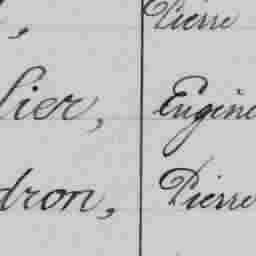 , Pierre
lier, Eugène
dron, Pierre